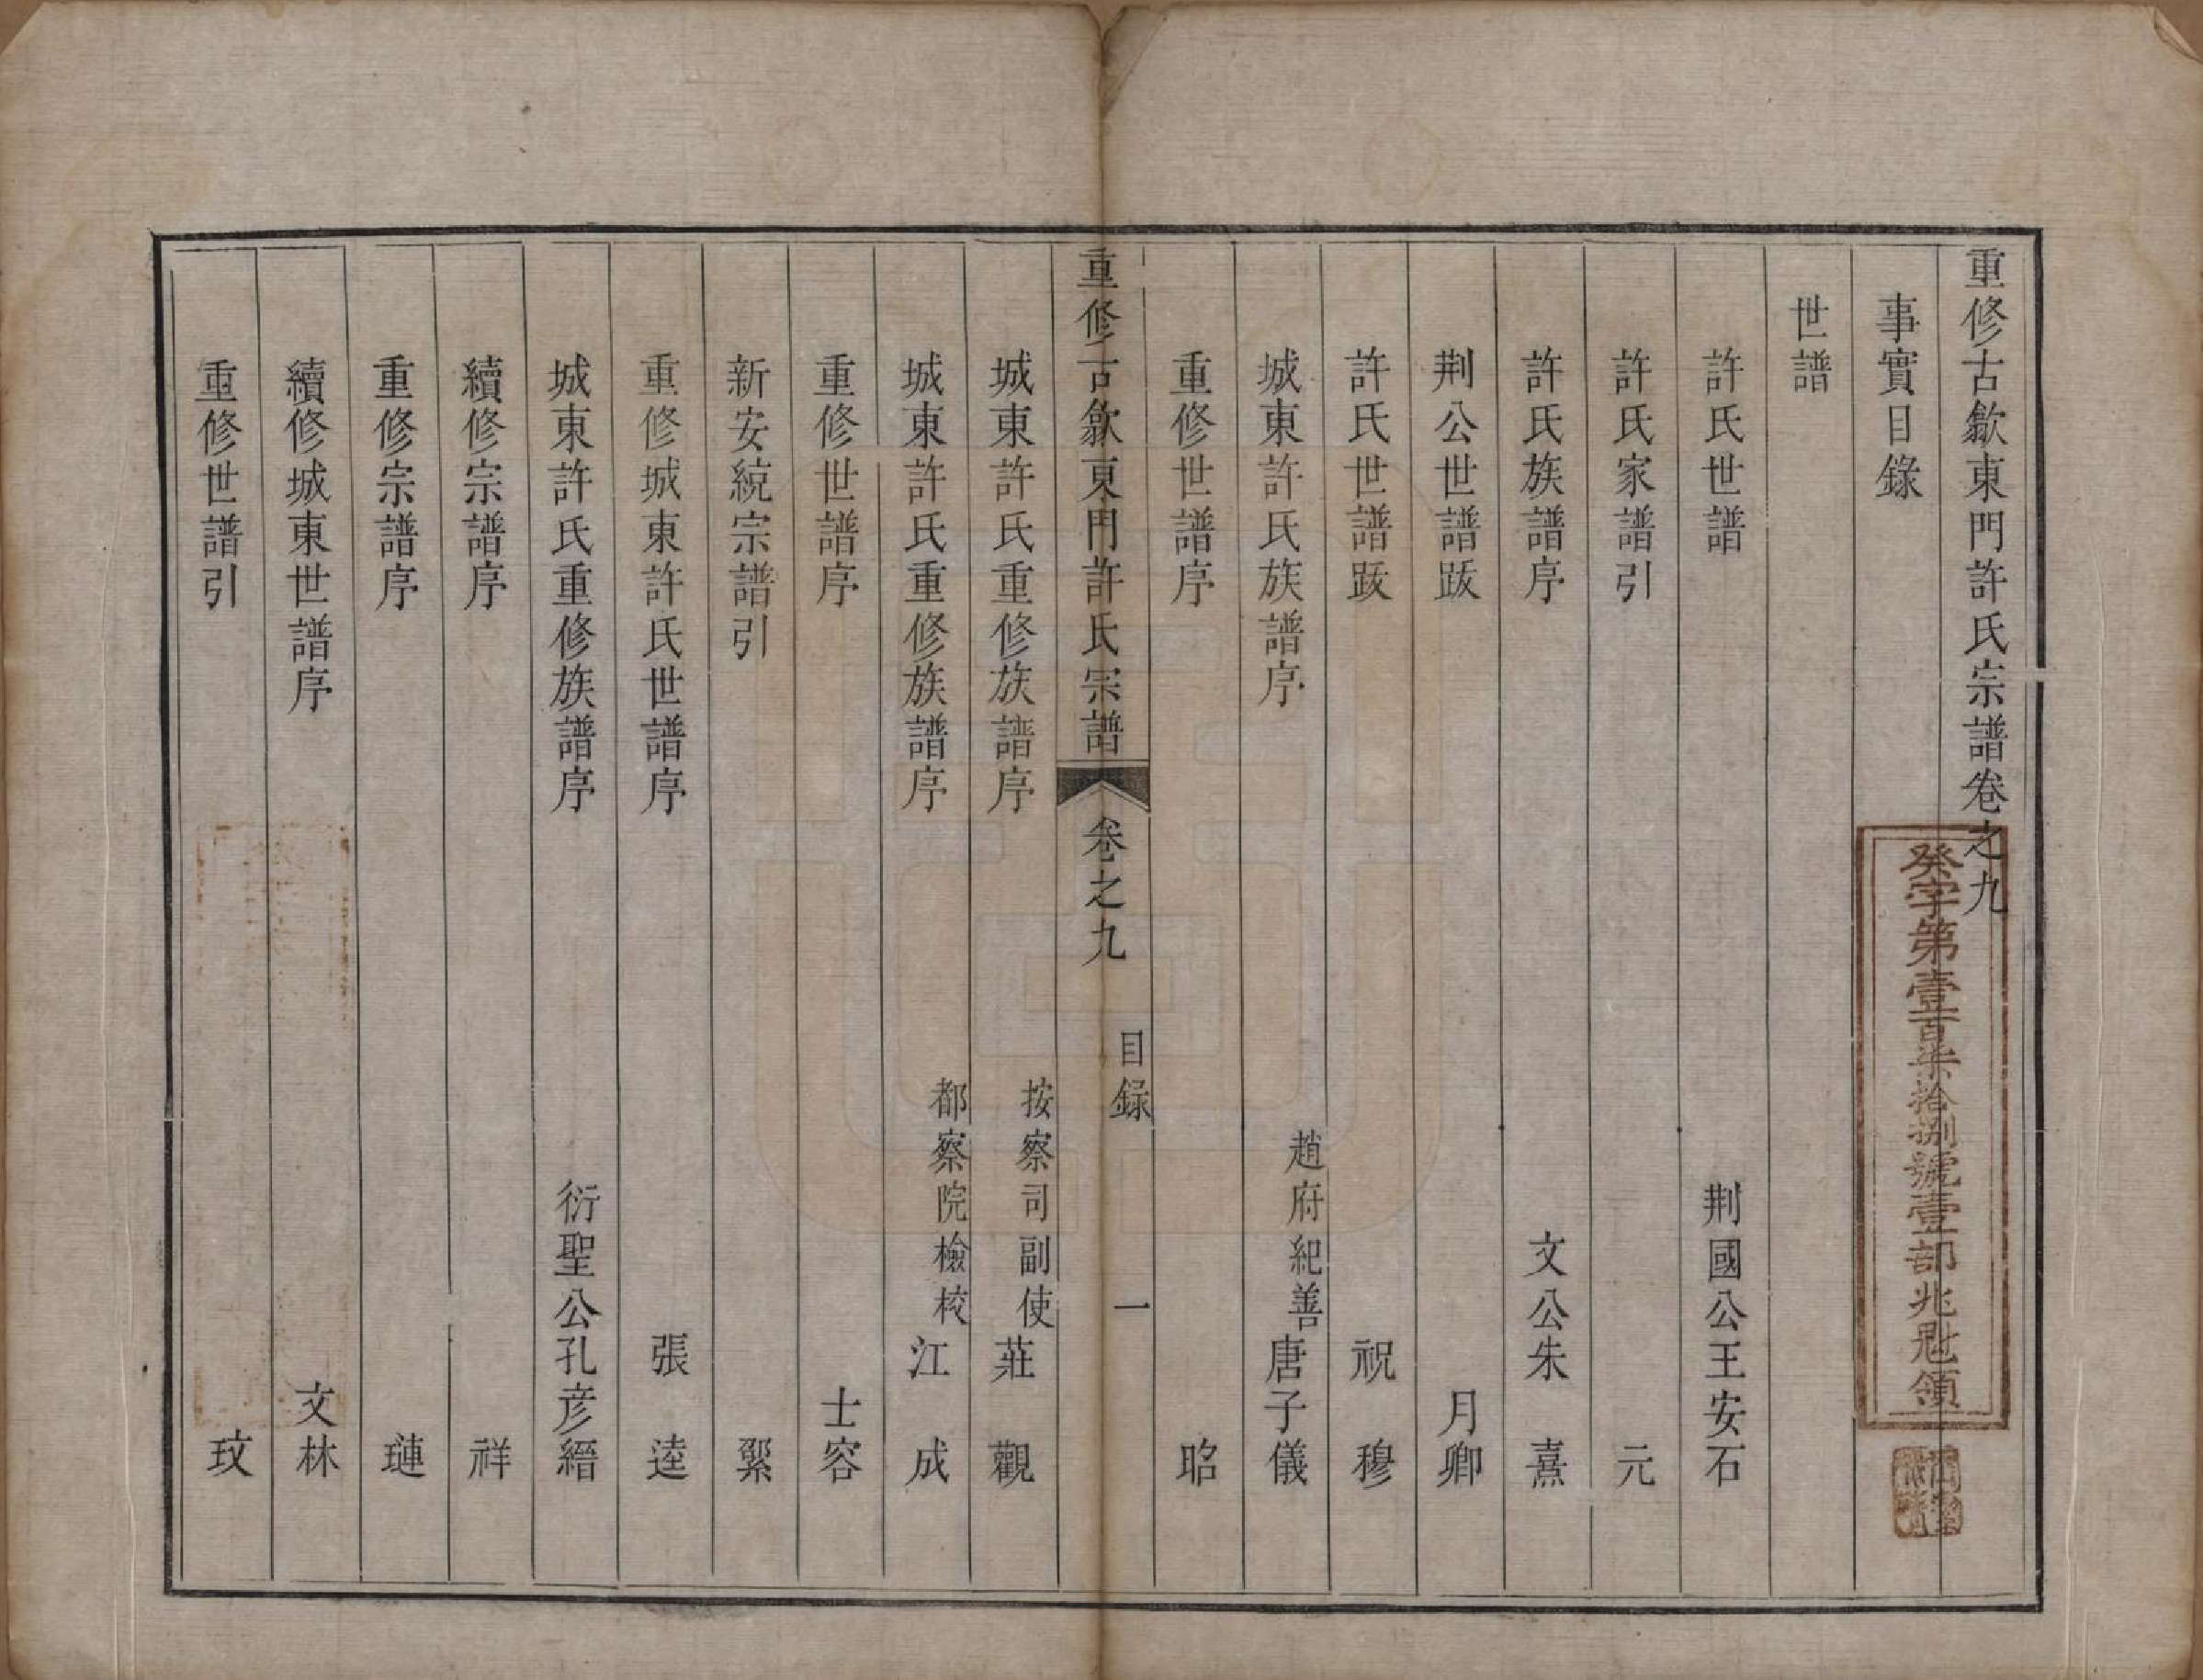 重修古歙東門許氏宗譜卷之九
事實目錄
世譜
許氏世譜 荆國公王安石
許氏家譜引 元
許氏族譜序 文公朱熹
荆公世譜跋 月卿
許氏世譜跋 祝穆
城東許氏族譜序 趙府紀善唐子儀
重修世譜序 昭
重修古歙東門許氏宗譜 卷之九 目錄 一
城東許氏重修族譜序 按察司副使莊觀
城東許氏重修族譜序 都察院檢校江成
重修世譜序 士容
新安統宗譜引 䋺
重修城東許氏世譜序 張逵
城東許氏重修族譜序 衍聖公孔彥縉
續修宗譜序 祥
重修宗譜序 璉
續修城東世譜序 文林
重修世譜引 玟
癸字第壹百柒拾捌號壹部兆尡領